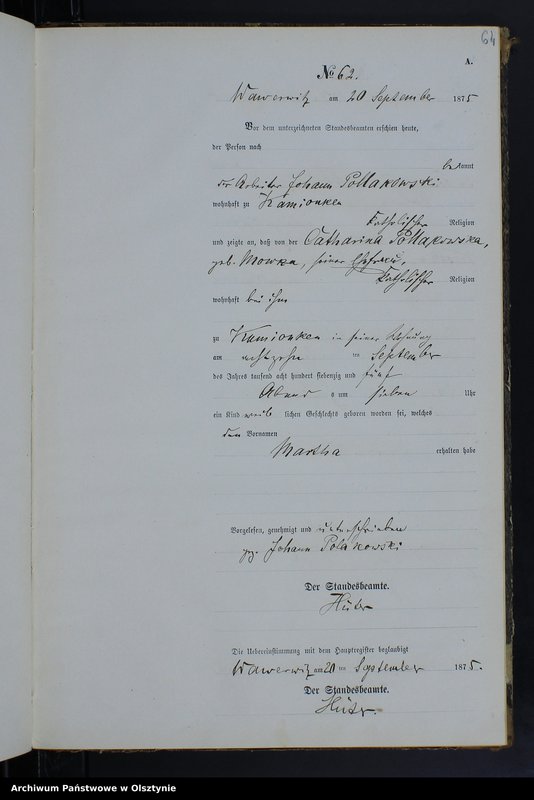 64
A.
№ 62.
Wawerwitz am 20 September 1875
Vor dem unterzeichneten Standesbeamten erschien heute,
der Person nach
bekannt
der Arbeiter Johann Pollakowski
wohnhaft zu Kamionken
katholischer Religion
und zeigte an, daß von der Catharina Pollakowska,
geb. Mowka, seiner Ehefrau,
katholischer Religion
wohnhaft bei ihm
zu Kamionken in seiner Wohnung
am achtzehn ten September
des Jahres tausend acht hundert siebenzig und fünf
Abend s um sieben Uhr
ein Kind weib lichen Geschlechts geboren worden sei, welches
den Vornamen
Martha erhalten habe
Vorgelesen, genehmigt und unterschrieben
gez. Johann Polakowski
Der Standesbeamte.
Hüter
Die Uebereinstimmung mit dem Hauptregister beglaubigt
Wawerwitz am 20 ten September 1875.
Der Standesbeamte.
Hüter.
Archiwum Państwowe w Olsztynie